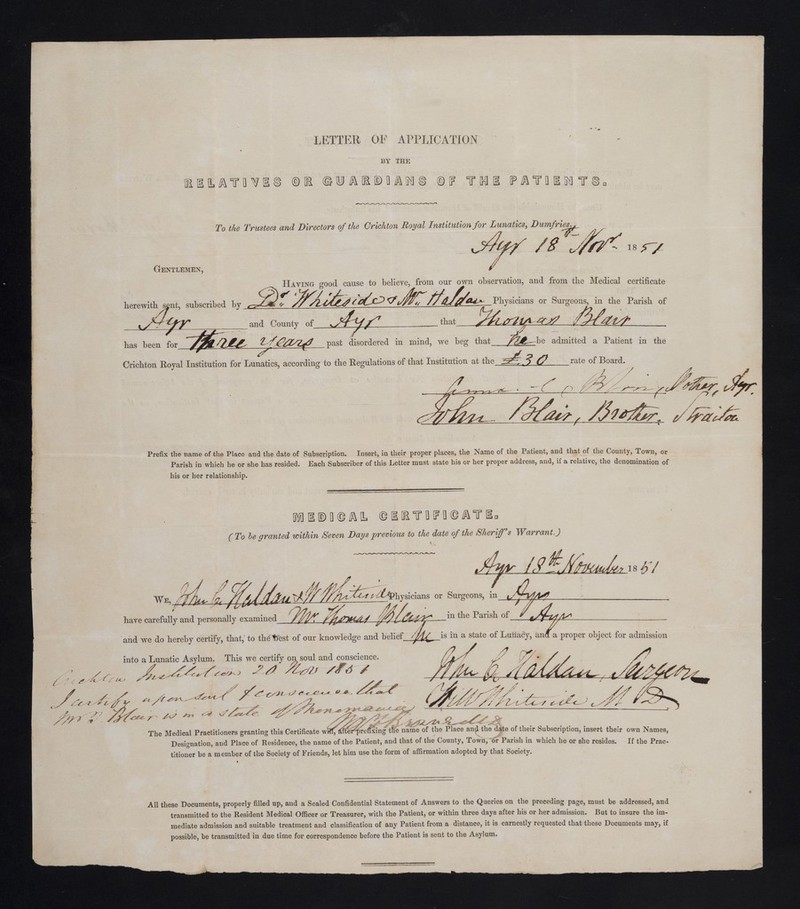 LETTER OF APPLICATION
BY THE
RELATIVES OR GUARDIANS OF THE PATIENTS.
To the Trustees and Directors of the Crichton Royal Institution for Lunatics, Dumfries,
Ayr 18th Novr. 1851
GENTLEMEN,
HAVING good cause to believe, from our own observation, and from the Medical certificate
herewith sent, subscribed by Dr. Whiteside & Mr. Haldan Physicians or Surgeons, in the Parish of
Ayr and County of Ayr that Thomas Blair
has been for three years past disordered in mind, we beg that he be admitted a Patient in the
Crichton Royal Institution for Lunatics, according to the Regulations of that Institution at the £30 rate of Board.
Blair, Mother, Ayr.
John Blair, Brother, Straiton
Prefix the name of the Place and the date of Subscription. Insert, in their proper places, the Name of the Patient, and that of the County, Town, or
Parish in which he or she has resided. Each Subscriber of this Letter must state his or her proper address, and, if a relative, the denomination of
his or her relationship.
MEDICAL CERTIFICATE.
(To be granted within Seven Days previous to the date of the Sheriff's Warrant.)
Ayr 18th November 1851
WE, John C. Haldan & W Whiteside Physicians or Surgeons, in Ayr
have carefully and personally examined Mr. Thomas Blair in the Parish of Ayr
and we do hereby certify, that, to the best of our knowledge and belief he is in a state of Lunacy, and a proper object for admission
into a Lunatic Asylum. This we certify on soul and conscience.
Crichton Institution 20 Nov 1851
John C. Haldan, Surgeon
I certify upon soul & conscience that
Whiteside M D
Mr T Blair is in a state of Monomania
The Medical Practitioners granting this Certificate will, after prefixing the name of the Place and the date of their Subscription, insert their own Names,
Designation, and Place of Residence, the name of the Patient, and that of the County, Town, or Parish in which he or she resides. If the Prac-
titioner be a member of the Society of Friends, let him use the form of affirmation adopted by that Society.
All these Documents, properly filled up, and a Sealed Confidential Statement of Answers to the Queries on the preceding page, must be addressed, and
transmitted to the Resident Medical Officer or Treasurer, with the Patient, or within three days after his or her admission. But to insure the im-
mediate admission and suitable treatment and classification of any Patient from a distance, it is earnestly requested that these Documents may, if
possible, be transmitted in due time for correspondence before the Patient is sent to the Asylum.